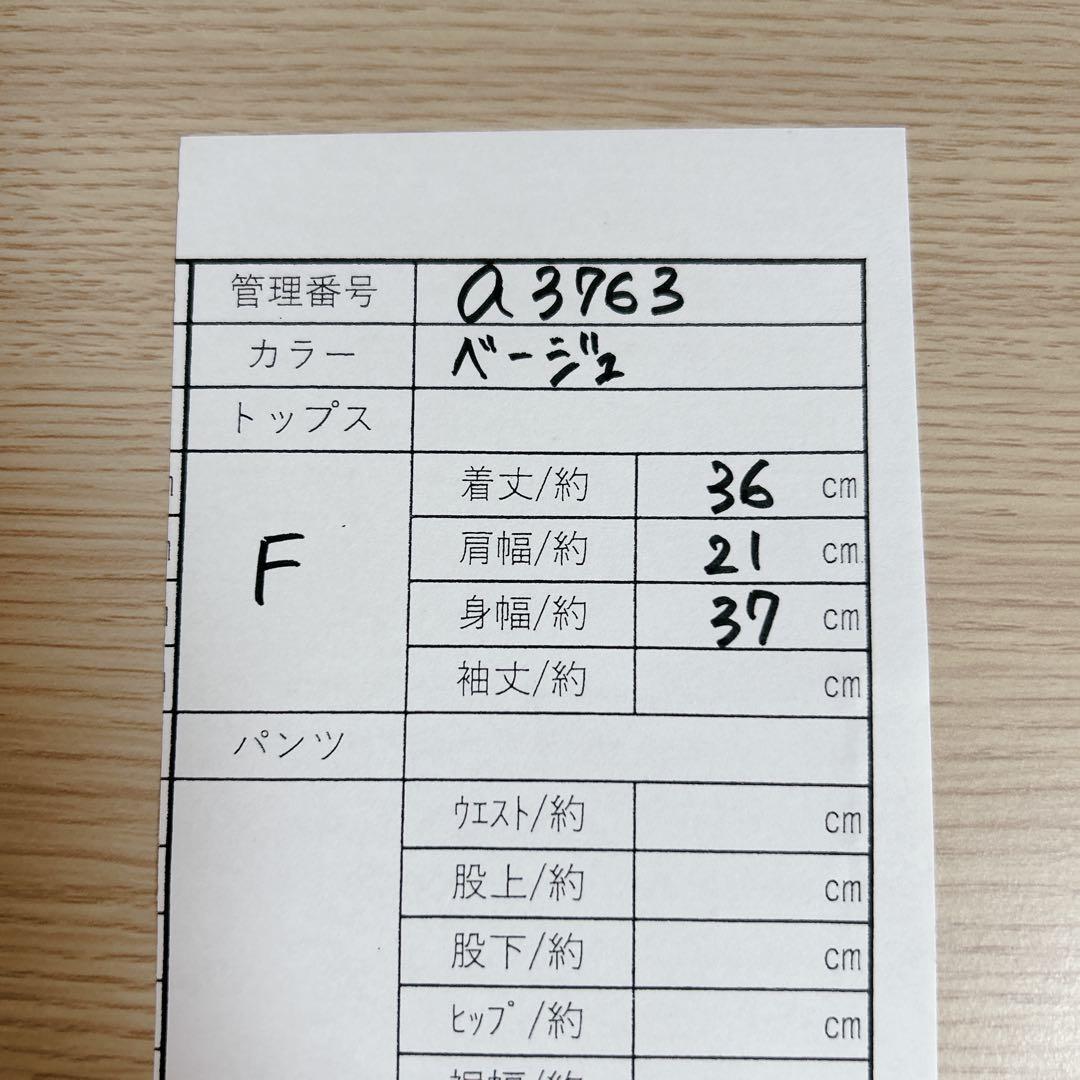 管理番号 a3763
カラー ベージュ
トップス
F
着丈/約 36 cm
肩幅/約 21 cm
身幅/約 37 cm
袖丈/約 cm
パンツ
ｳｴｽﾄ/約 cm
股上/約 cm
股下/約 cm
ﾋｯﾌﾟ/約 cm
裾幅/約 cm